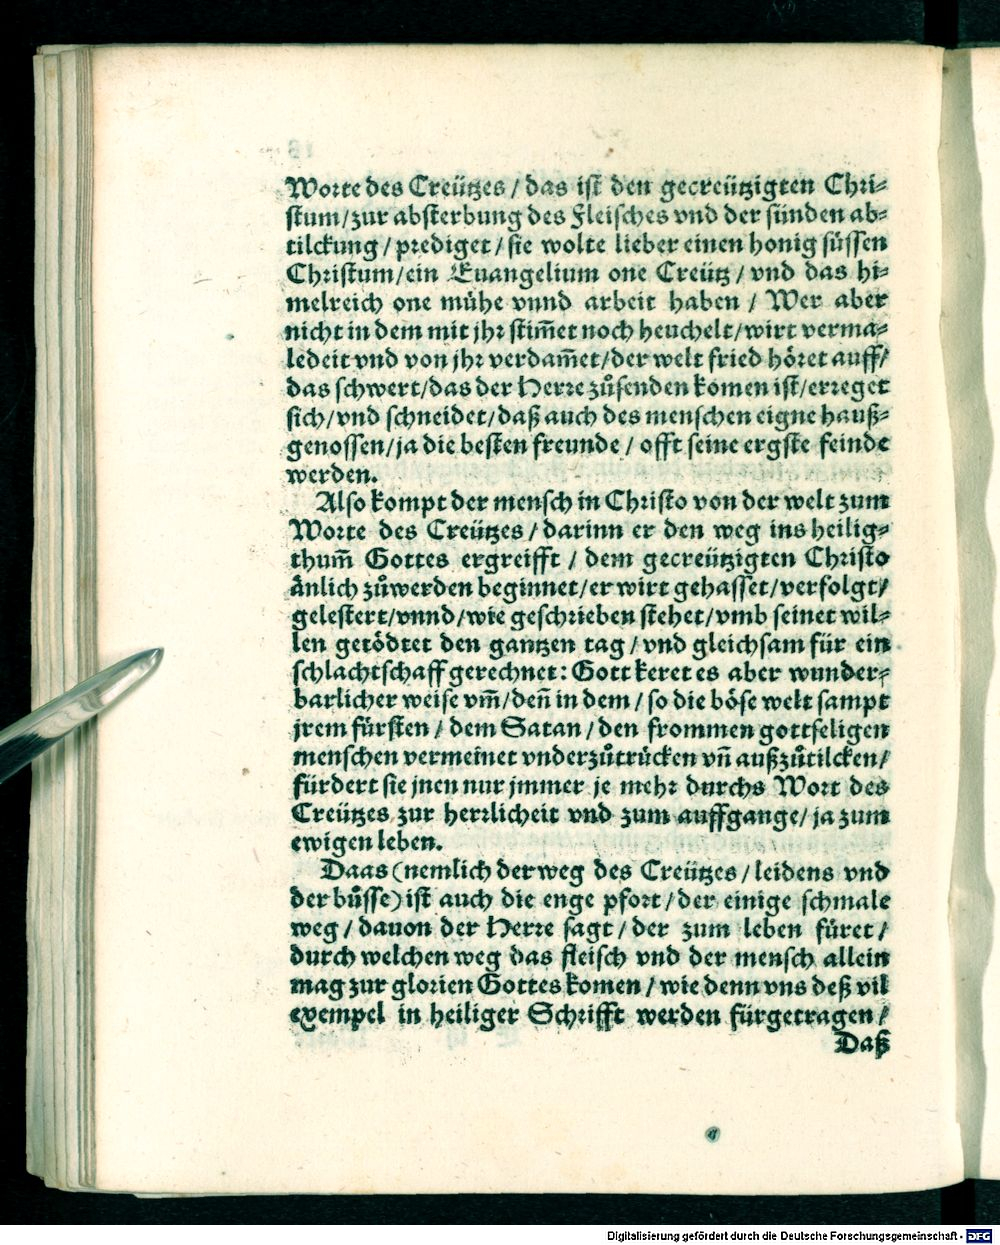 Worte des Creützes / das ist den gecreützigten Chri-
stum/zur absterbung des Fleisches vnd der sünden ab-
tilckung / prediget / sie wolte lieber einen honig süssen
Christum/ein Euangelium one Creütz / vnd das hi-
melreich one mühe vnnd arbeit haben / Wer aber
nicht in dem mit jhr stim̃et noch heuchelt/wirt verma-
ledeit vnd von jhr verdam̃et/der welt fried höret auff/
das schwert/das der Herre zůsenden komen ist/erreget
sich/vnd schneidet/daß auch des menschen eigne hauß-
genossen/ja die besten freunde / offt seine ergste feinde
werden.
Also kompt der mensch in Christo von der welt zum
Worte des Creützes / darinn er den weg ins heilig-
thum̃ Gottes ergreifft / dem gecreützigten Christo
änlich zůwerden beginnet/er wirt gehasset/verfolgt/
gelestert/vnnd/wie geschrieben stehet/vmb seinet wil-
len getödtet den gantzen tag / vnd gleichsam für ein
schlachtschaff gerechnet: Gott keret es aber wunder-
barlicher weise vm̃/den̄ in dem / so die böse welt sampt
jrem fürsten / dem Satan / den frommen gottseligen
menschen vermeinet vnderzůtrücken vn̄ außzůtilcken/
fürdert sie jnen nur jmmer je mehr durchs Wort des
Creützes zur herrlicheit vnd zum auffgange/ ja zum
ewigen leben.
Daas (nemlich der weg des Creützes / leidens vnd
der bůsse) ist auch die enge pfort / der einige schmale
weg / dauon der Herre sagt / der zum leben füret /
durch welchen weg das fleisch vnd der mensch allein
mag zur glorien Gottes komen / wie denn vns deß vil
exempel in heiliger Schrifft werden fürgetragen /
Daß
Digitalisierung gefördert durch die Deutsche Forschungsgemeinschaft - DFG